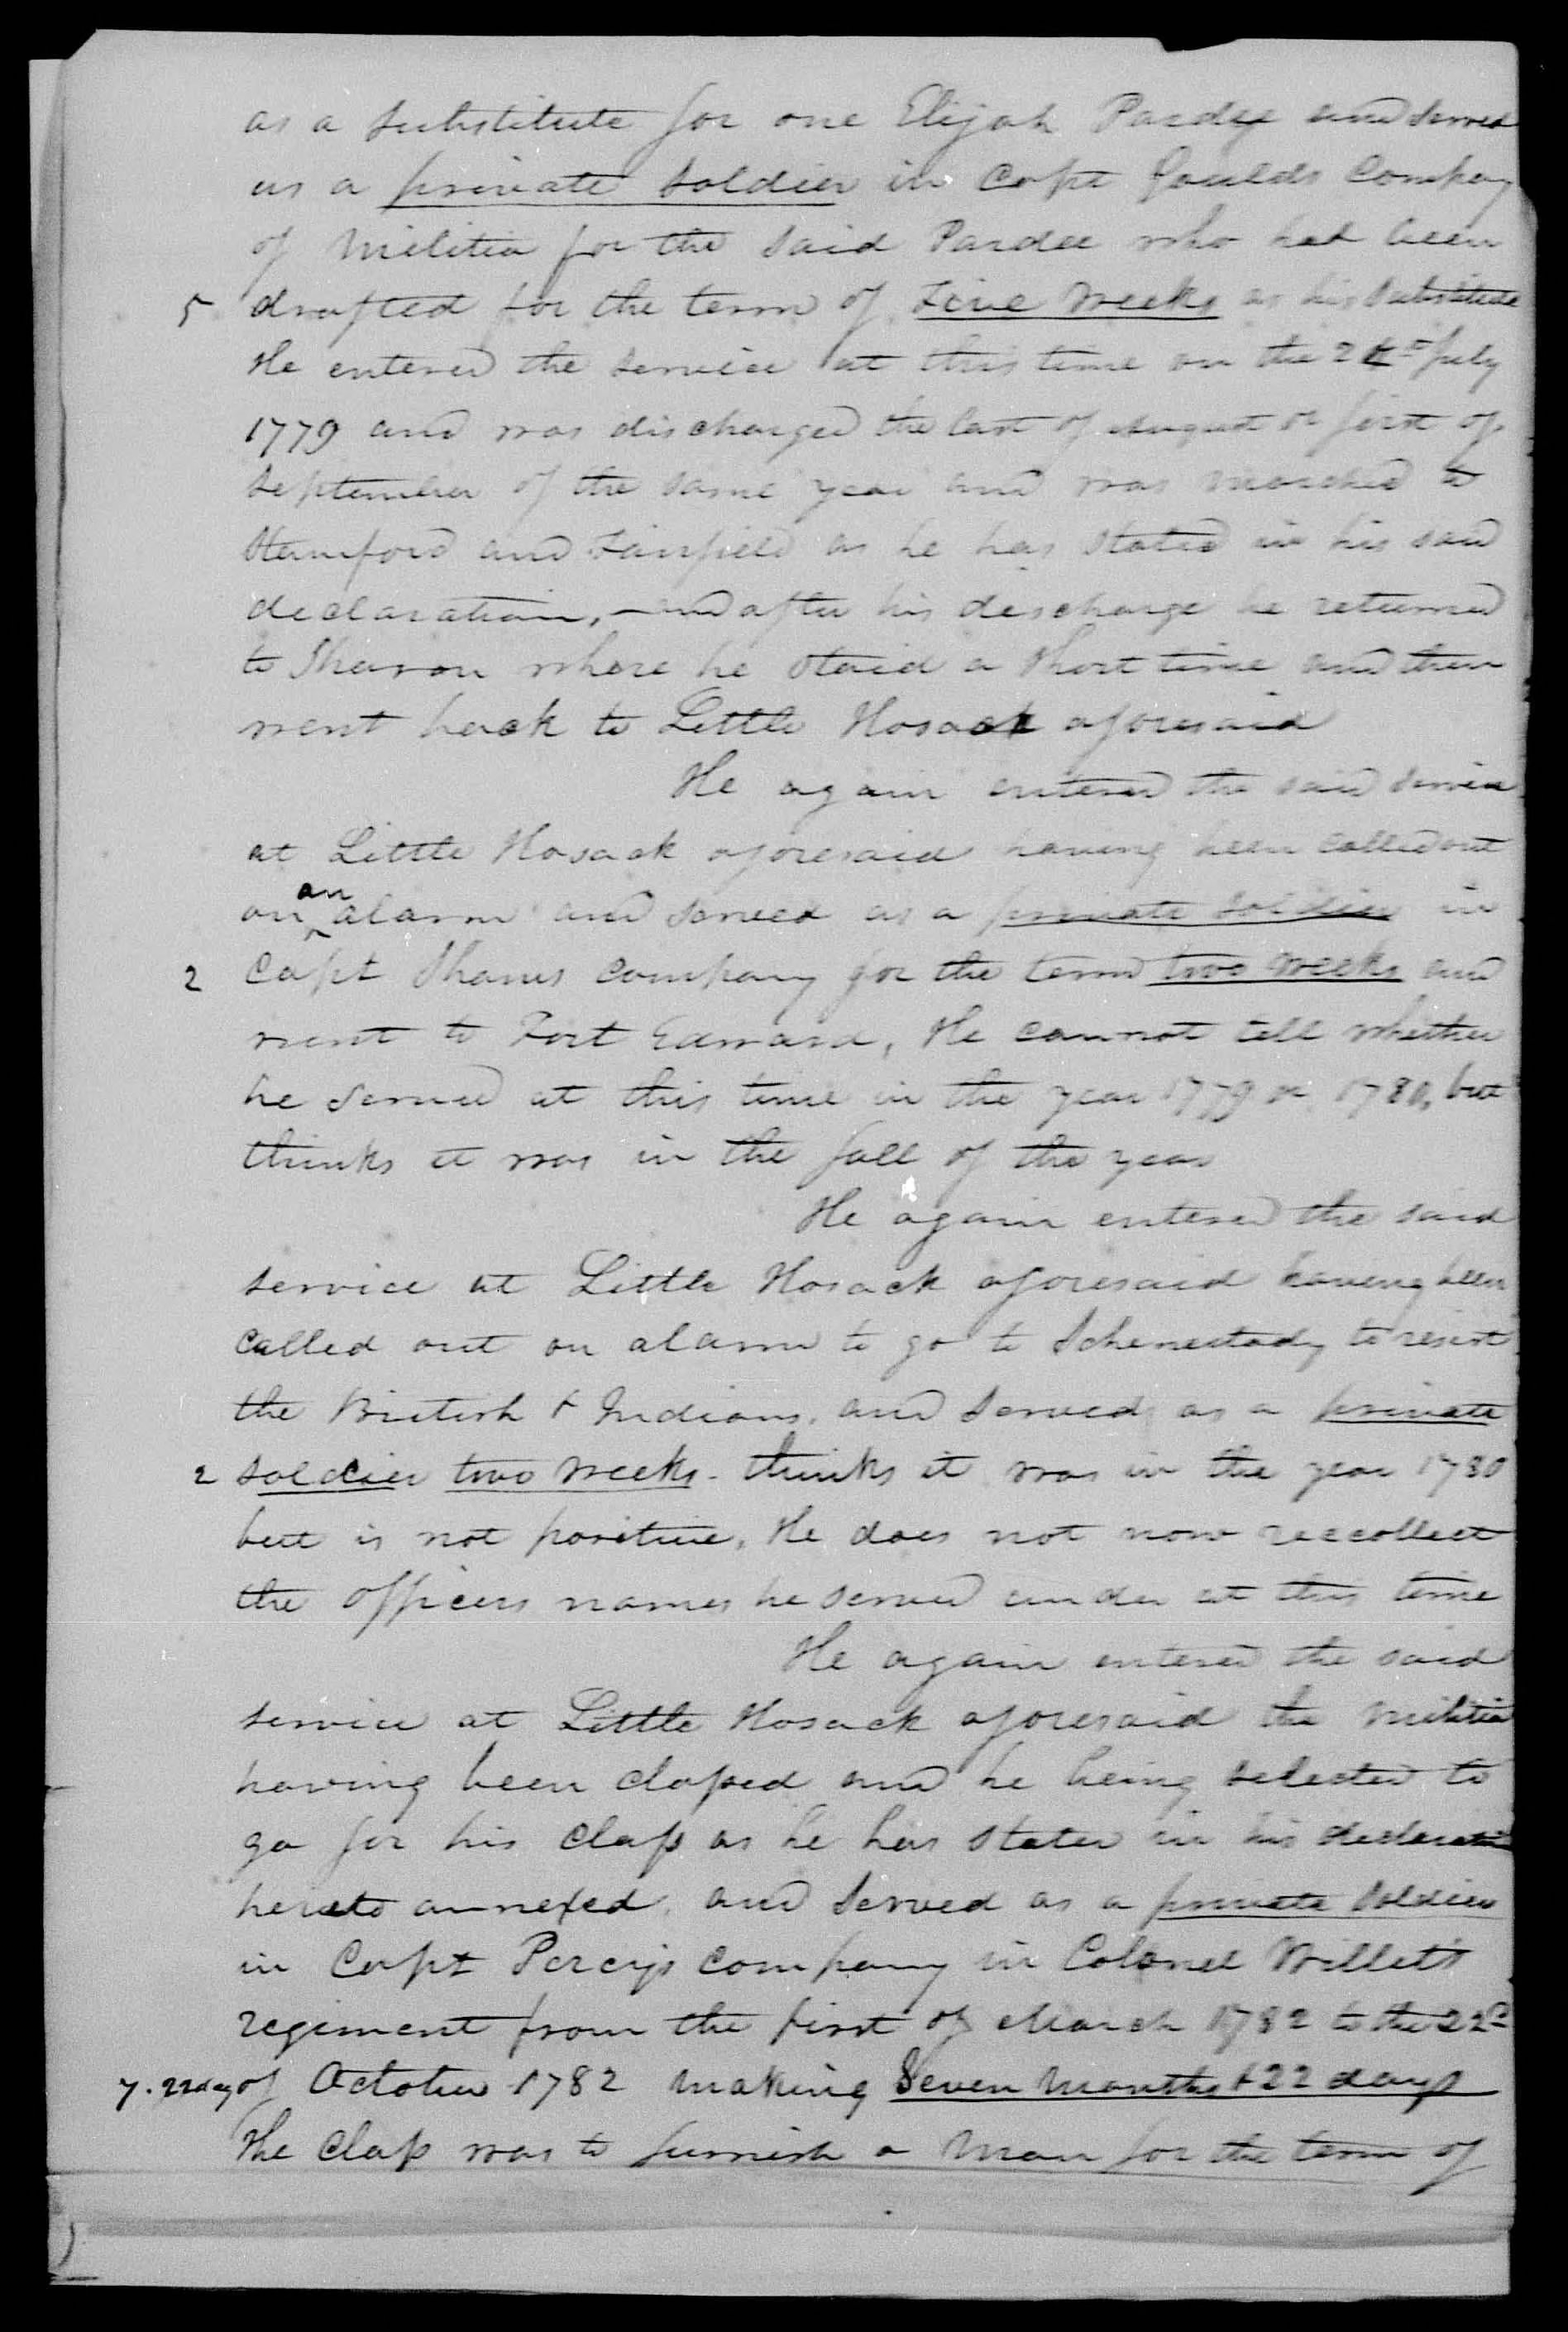 as a substitute for one Elijah Pardee and served
as a private soldier in Capt Goulds Company
of Militia for the said Pardee who had been
5 drafted for the term of five weeks as his substitute
He entered the service at this time on the July
1779 and was discharged the last of August or first of
September of the same year and was marched to
Stamford and Fairfield as he has stated in his said
declaration, and after his discharge he returned
to Sharon where he staid a short time and then
went back to Little Hosack aforesaid
He again entered the said service
at Little Hosack aforesaid having been called out
on an alarm and served as a private soldier in
2 Capt Shaws company for the term two weeks and
went to Fort Edward, He cannot tell whether
he served at this time in the year 1779 or 1780, but
thinks it was in the fall of the year
He again entered the said
service at Little Hosack aforesaid having been
called out on alarm to go to Schenectady to resist
the British & Indians, and served as a private
2 soldier two weeks - thinks it was in the year 1780
but is not positive, He does not now reccollect
the officers names he served under at this time
He again entered the said
service at Little Hosack aforesaid the militia
having been classed and he being selected to
go for his class as he has stated in his declaration
hereto annexed, and served as a private soldier
in Capt Percys company in Colonel Willets
regiment from the first of March 1782 to the 22d
7. 22 day of October 1782 making Seven Months & 22 days
The class was to furnish a man for the term of